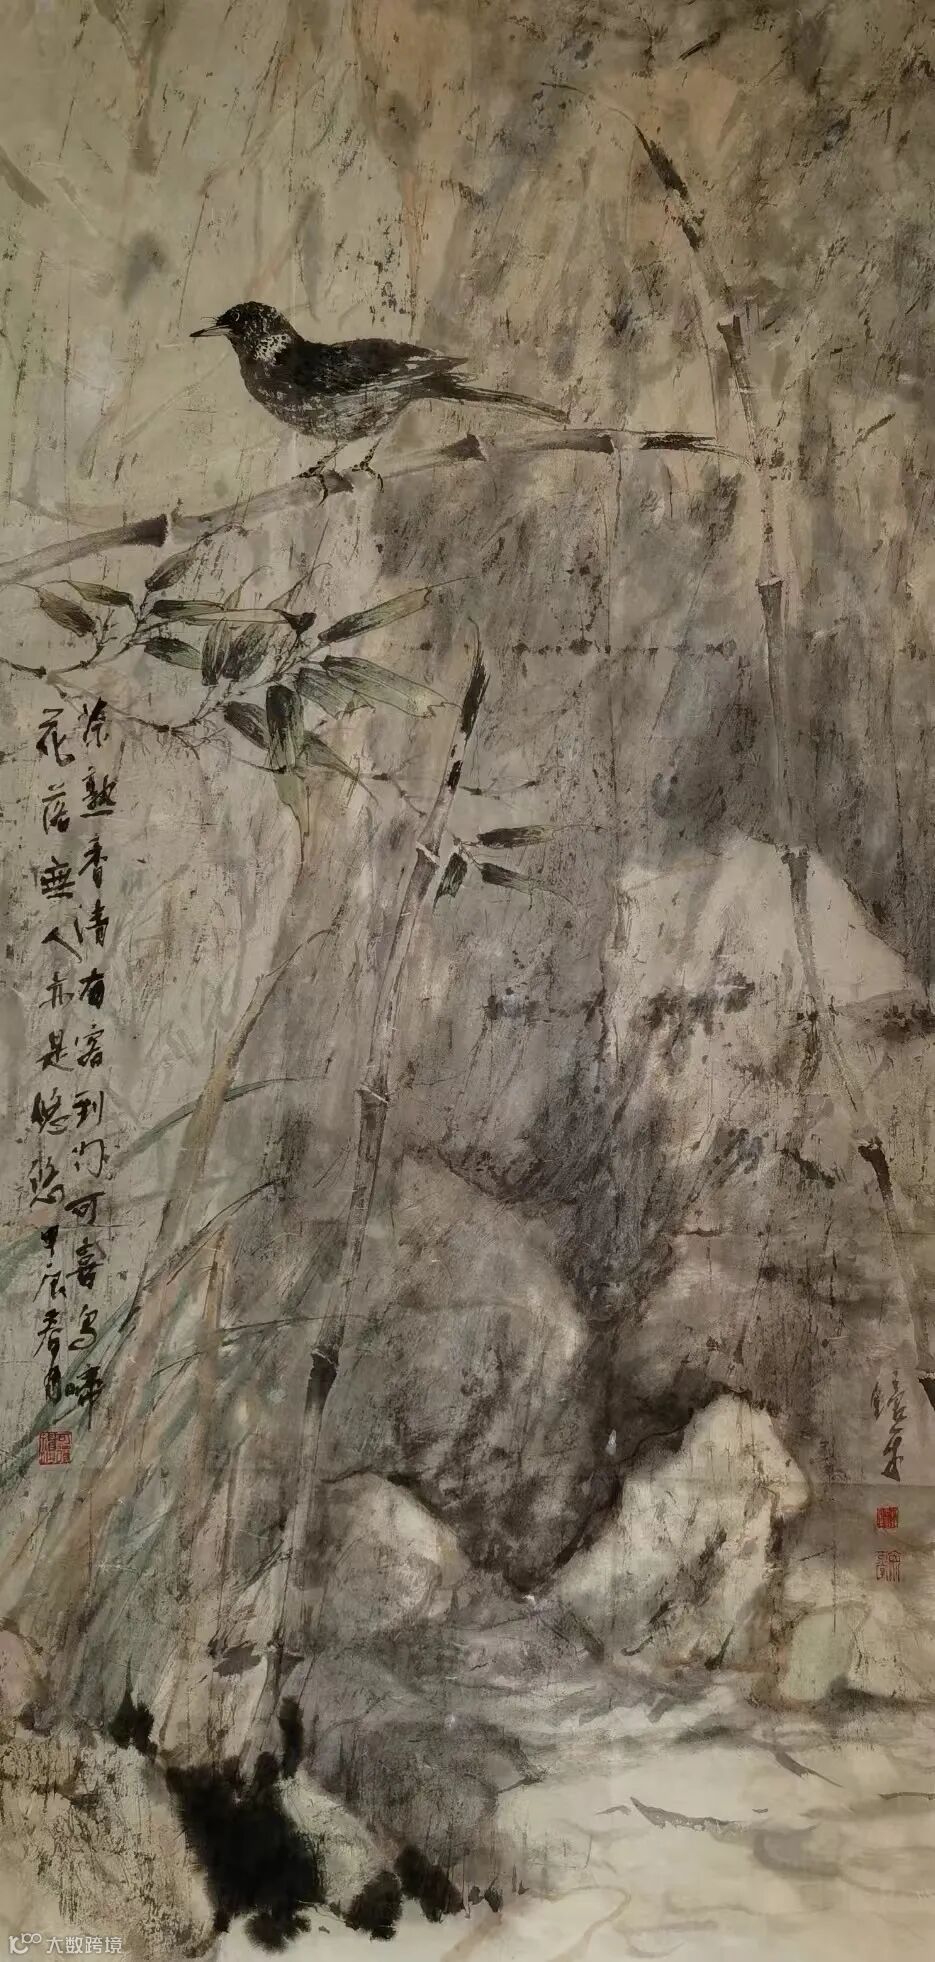 茶熟香清有客到门可喜鸟啼
花落無人亦是悠悠甲辰春月
大数跨境